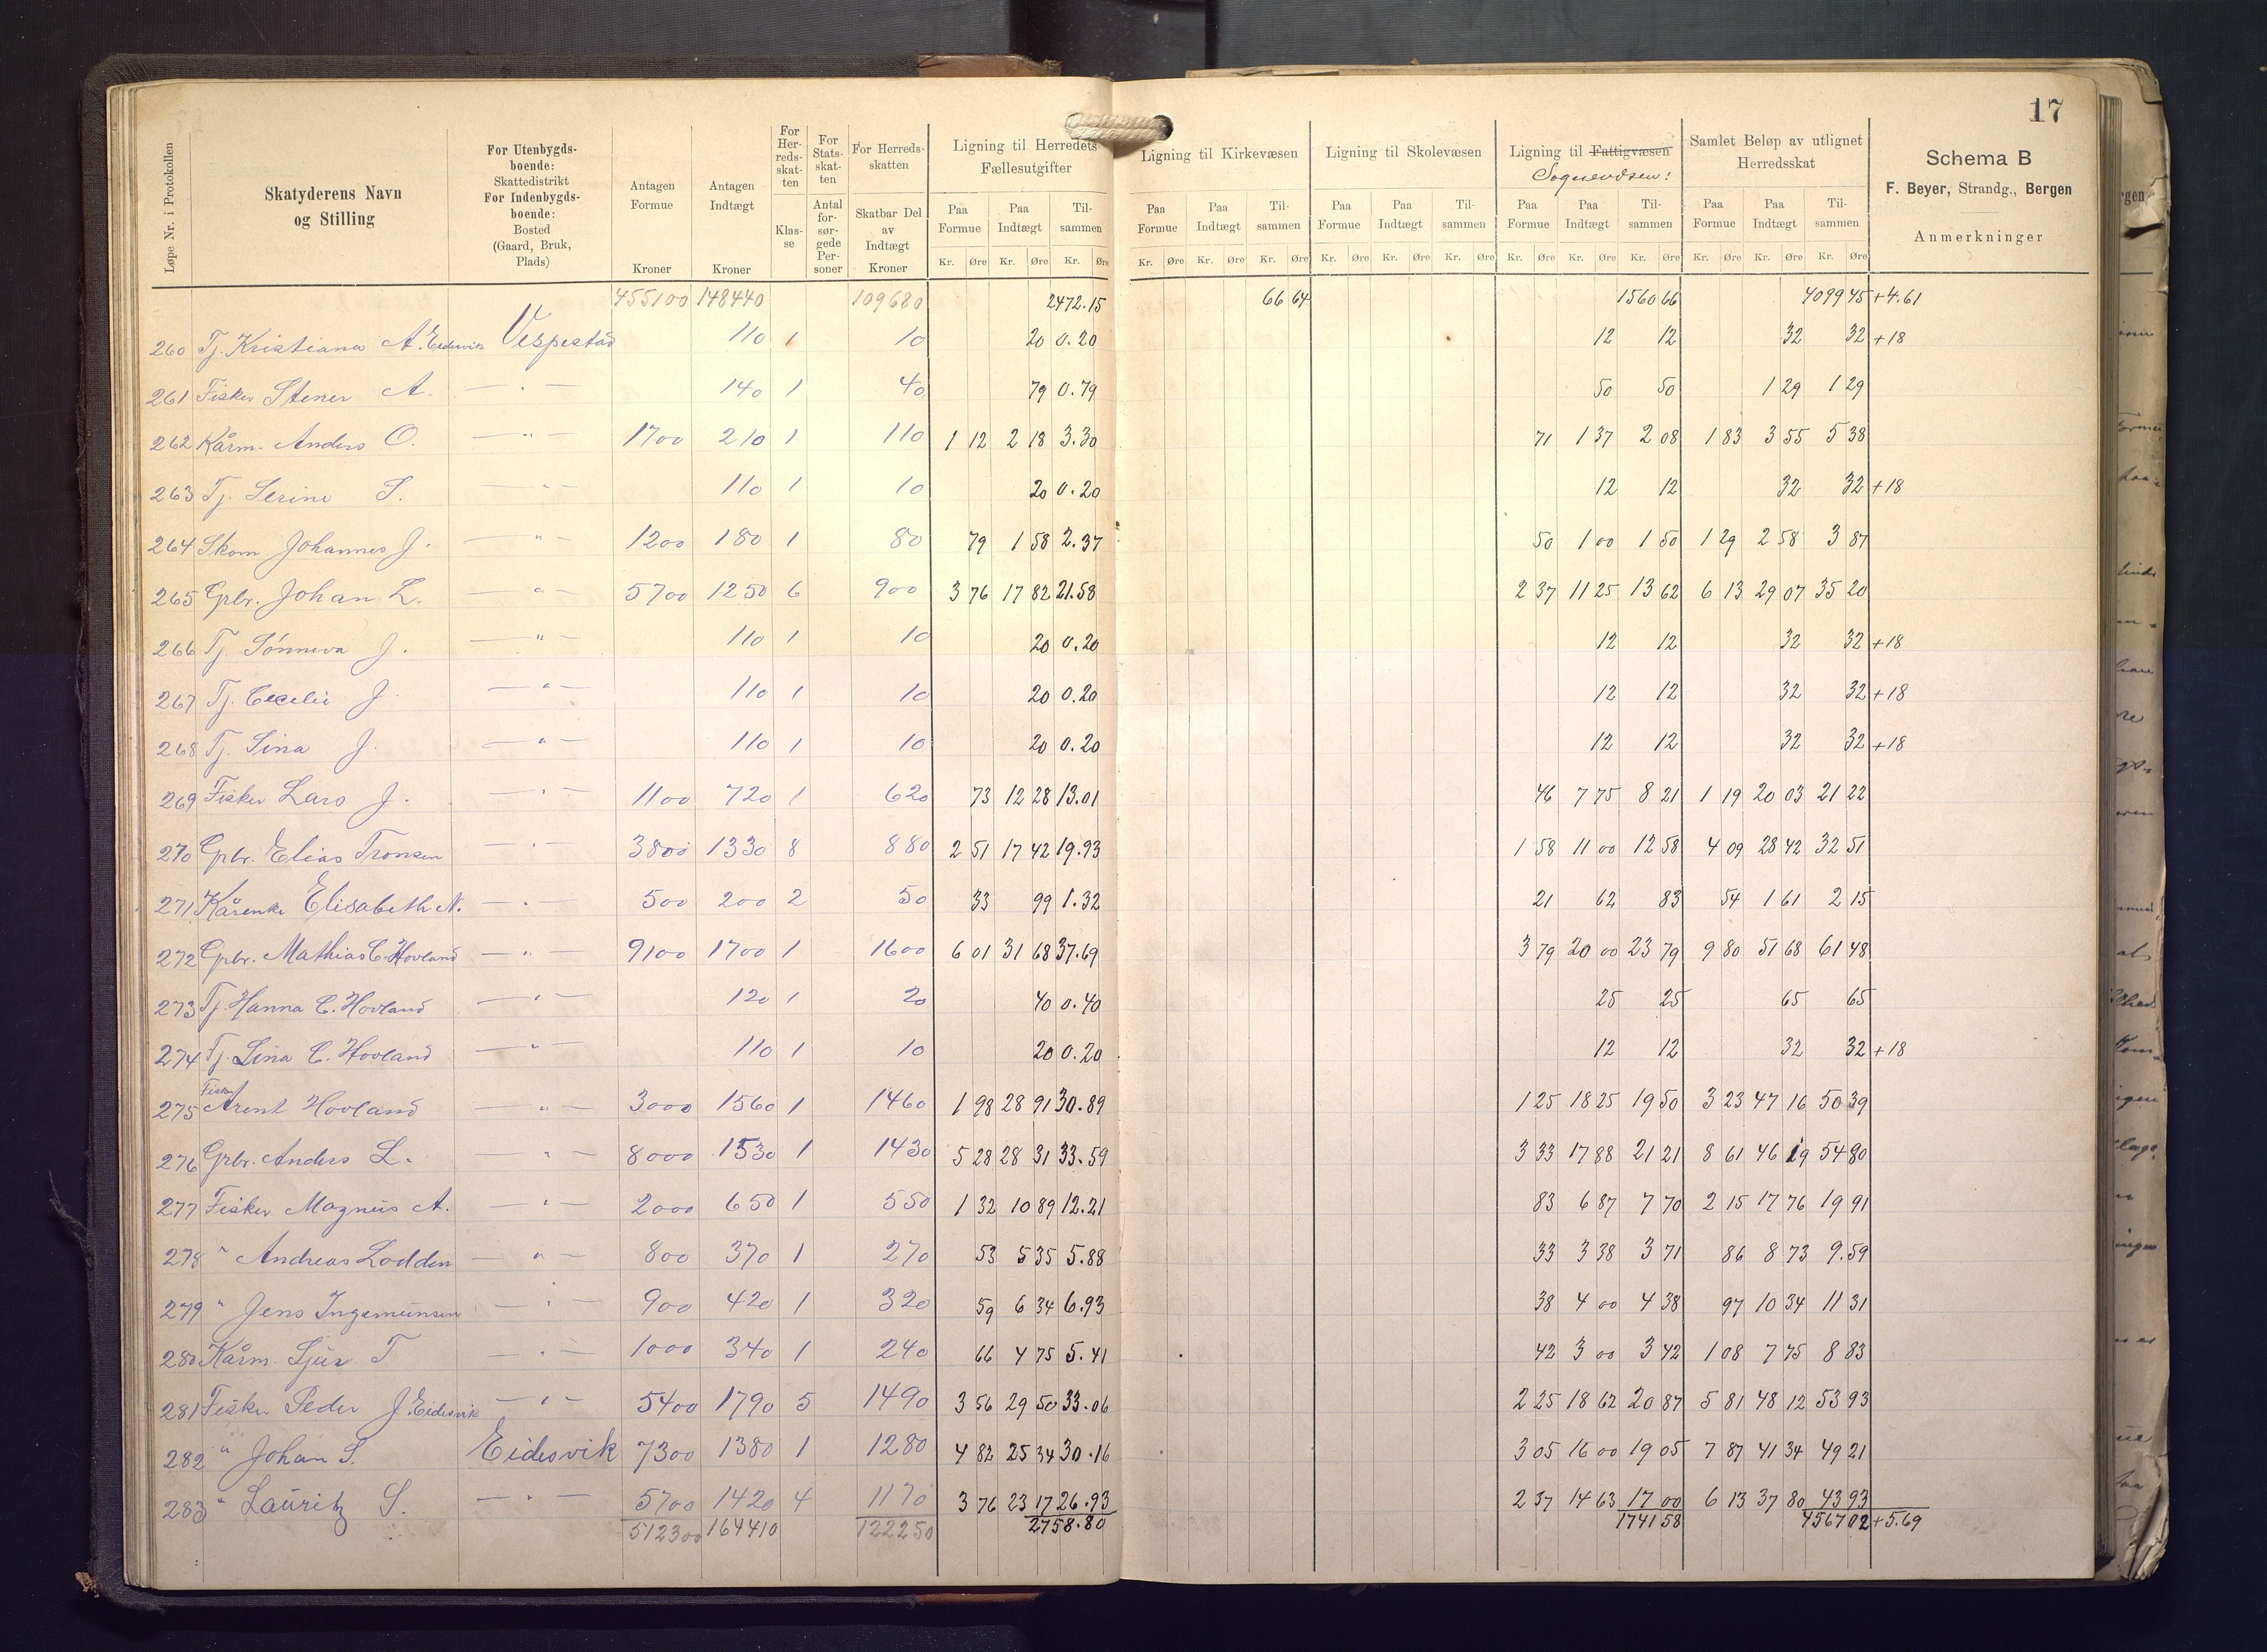 17
Løpe Nr. i Protokollen
Skatyderens Navn og Stilling
For Utenbygds-boende: Skattedistrikt For Indenbygds-boende: Bosted (Gaard, Bruk, Plads)
Antagen Formue Kroner
Antagen Indtægt Kroner
For Her-reds-skat-ten Klas-se
For Stats-skat-ten Antal for-sør-gede Per-soner
For Herreds-skatten Skatbar Del av Indtægt Kroner
Ligning til Herredets Fællesutgifter
Ligning til Kirkevæsen
Ligning til Skolevæsen
Ligning til Fattigvæsen
Samlet Beløp av utlignet Herredsskat
Paa Formue Paa Indtægt Til-sammen
Kr. Øre Kr. Øre Kr. Øre
Schema B
F. Beyer, Strandg., Bergen
Anmerkninger
455100 148440 109680 2472.15 66 64 1560 66 4099 45 +4.61
260 Tj. Kristiana A. Eidesvik Vespestad 110 1 10 20 0.20 12 12 32 32 +18
261 Fisker Stener A. — " — 140 1 40 79 0.79 50 50 1 29 1 29
262 Kårm. Anders O. — " — 1700 210 1 110 1 12 2 18 3.30 71 1 37 2 08 1 83 3 55 5 38
263 Tj. Serine S. — " — 110 1 10 20 0.20 12 12 32 32 +18
264 Skom. Johannes J. — " — 1200 180 1 80 79 1 58 2.37 50 1 00 1 50 1 29 2 58 3 87
265 Grbr. Johan L. — " — 5700 1250 6 900 3 76 17 82 21.58 2 37 11 25 13 62 6 13 29 07 35 20
266 Tj. Sønneva J. — " — 110 1 10 20 0.20 12 12 32 32 +18
267 Tj. Cecelie J. — " — 110 1 10 20 0.20 12 12 32 32 +18
268 Tj. Sina J. — " — 110 1 10 20 0.20 12 12 32 32 +18
269 Fisker Lars J. — " — 1100 720 1 620 73 12 28 13.01 46 7 75 8 21 1 19 20 03 21 22
270 Grbr. Elias Tronsen — " — 3800 1330 8 880 2 51 17 42 19.93 1 58 11 00 12 58 4 09 28 42 32 51
271 Kårenke Elisabeth N. — " — 500 200 2 50 33 99 1.32 21 62 83 54 1 61 2 15
272 Grbr. Mathias C. Hovland — " — 9100 1700 1 1600 6 01 31 68 37.69 3 79 20 00 23 79 9 80 51 68 61 48
273 Tj. Hanna C. Hovland — " — 120 1 20 40 0.40 25 25 65 65
274 Tj. Lina C. Hovland — " — 110 1 10 20 0.20 12 12 32 32 +18
275 Fisker Arent Hovland — " — 3000 1560 1 1460 1 98 28 91 30.89 1 25 18 25 19 50 3 23 47 16 50 39
276 Grbr. Anders L. — " — 8000 1530 1 1430 5 28 28 31 33.59 3 33 17 88 21 21 8 61 46 19 54 80
277 Fisker Magnus A. — " — 2000 650 1 550 1 32 10 89 12.21 83 6 87 7 70 2 15 17 76 19 91
278 " Andreas Lodden — " — 800 370 1 270 53 5 35 5.88 33 3 38 3 71 86 8 73 9.59
279 " Jens Ingemunsen — " — 900 420 1 320 59 6 34 6.93 38 4 00 4 38 97 10 34 11 31
280 Kårm. Sjur T. — " — 1000 340 1 240 66 4 75 5.41 42 3 00 3 42 1 08 7 75 8 83
281 Fisker Peder J. Eidesvik — " — 5400 1790 5 1490 3 56 29 50 33.06 2 25 18 62 20 87 5 81 48 12 53 93
282 " Johan S. Eidesvik 7300 1380 1 1280 4 82 25 34 30.16 3 05 16 00 19 05 7 87 41 34 49 21
283 " Lauritz S. — " — 5700 1420 4 1170 3 76 23 17 26.93 2 37 14 63 17 00 6 13 37 80 43 93
512300 164410 122250 2758.80 1741 58 4567 02 +5.69